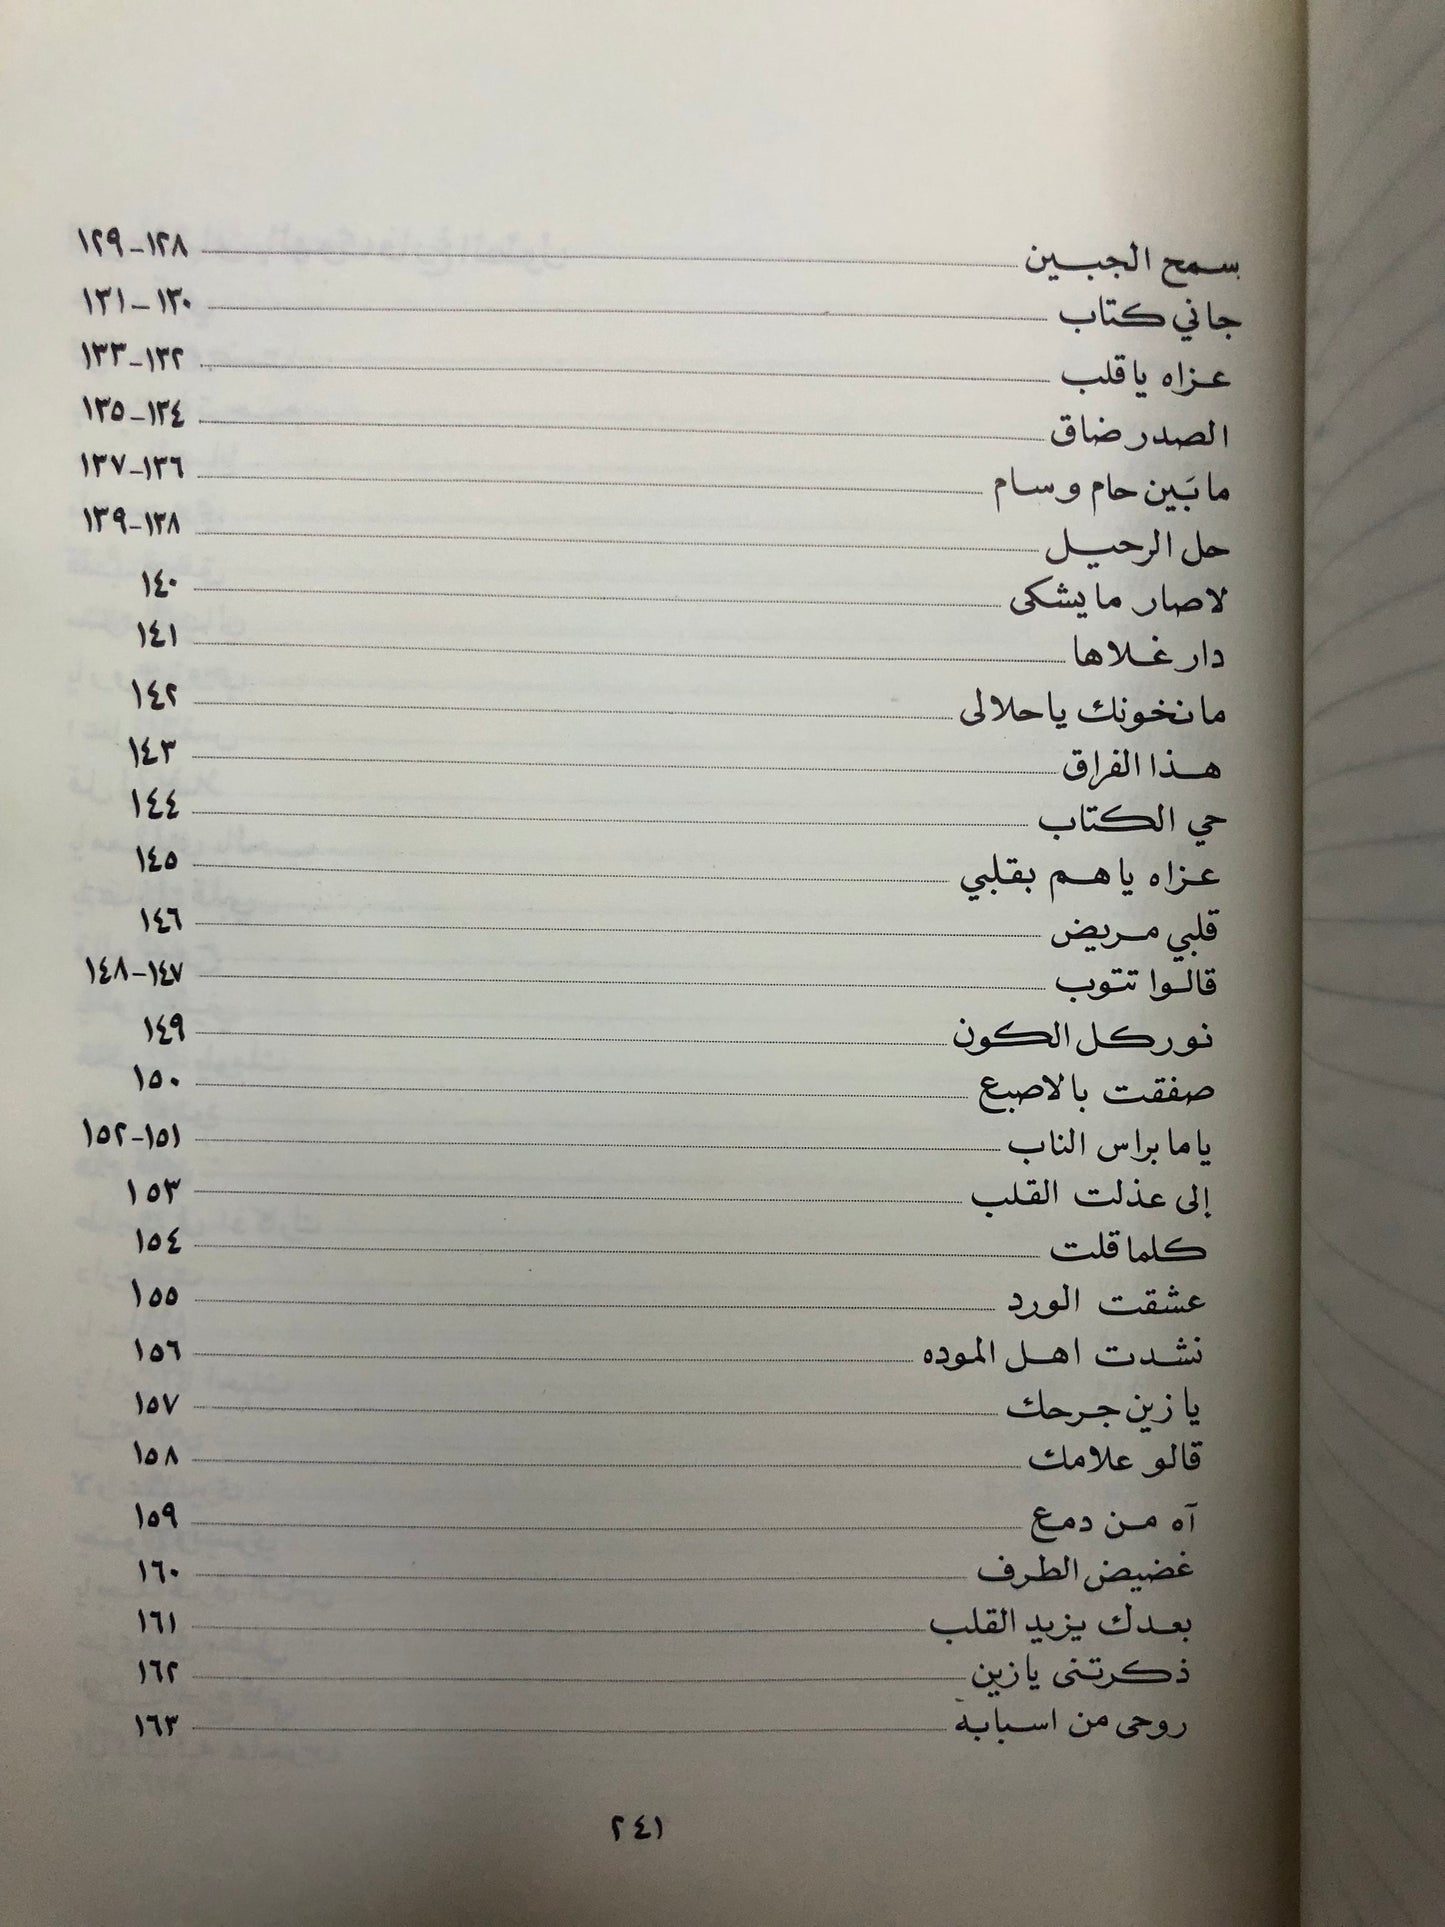 بسمح الجبين ١٢٨-١٢٩
جاني كتاب ١٣٠-١٣١
عزاه ياقلب ١٣٢-١٣٣
الصدر ضاق ١٣٤-١٣٥
ما بَين حام وسام ١٣٦-١٣٧
حل الرحيل ١٣٨-١٣٩
لاصار ما يشكى ١٤٠
دار غلاها ١٤١
ما نخونك ياحلالى ١٤٢
هذا الفراق ١٤٣
حي الكتاب ١٤٤
عزاه ياهم بقلبي ١٤٥
قلبي مريض ١٤٦
قالوا تتوب ١٤٧-١٤٨
نور كل الكون ١٤٩
صفقت بالاصبع ١٥٠
ياما براس الناب ١٥١-١٥٢
إلى عذلت القلب ١٥٣
كلما قلت ١٥٤
عشقت الورد ١٥٥
نشدت اهل الموده ١٥٦
يا زين جرحك ١٥٧
قالو علامك ١٥٨
آه من دمع ١٥٩
غضيض الطرف ١٦٠
بعدك يزيد القلب ١٦١
ذكرتنى يا زين ١٦٢
روحى من اسبابة ١٦٣
٢٤١